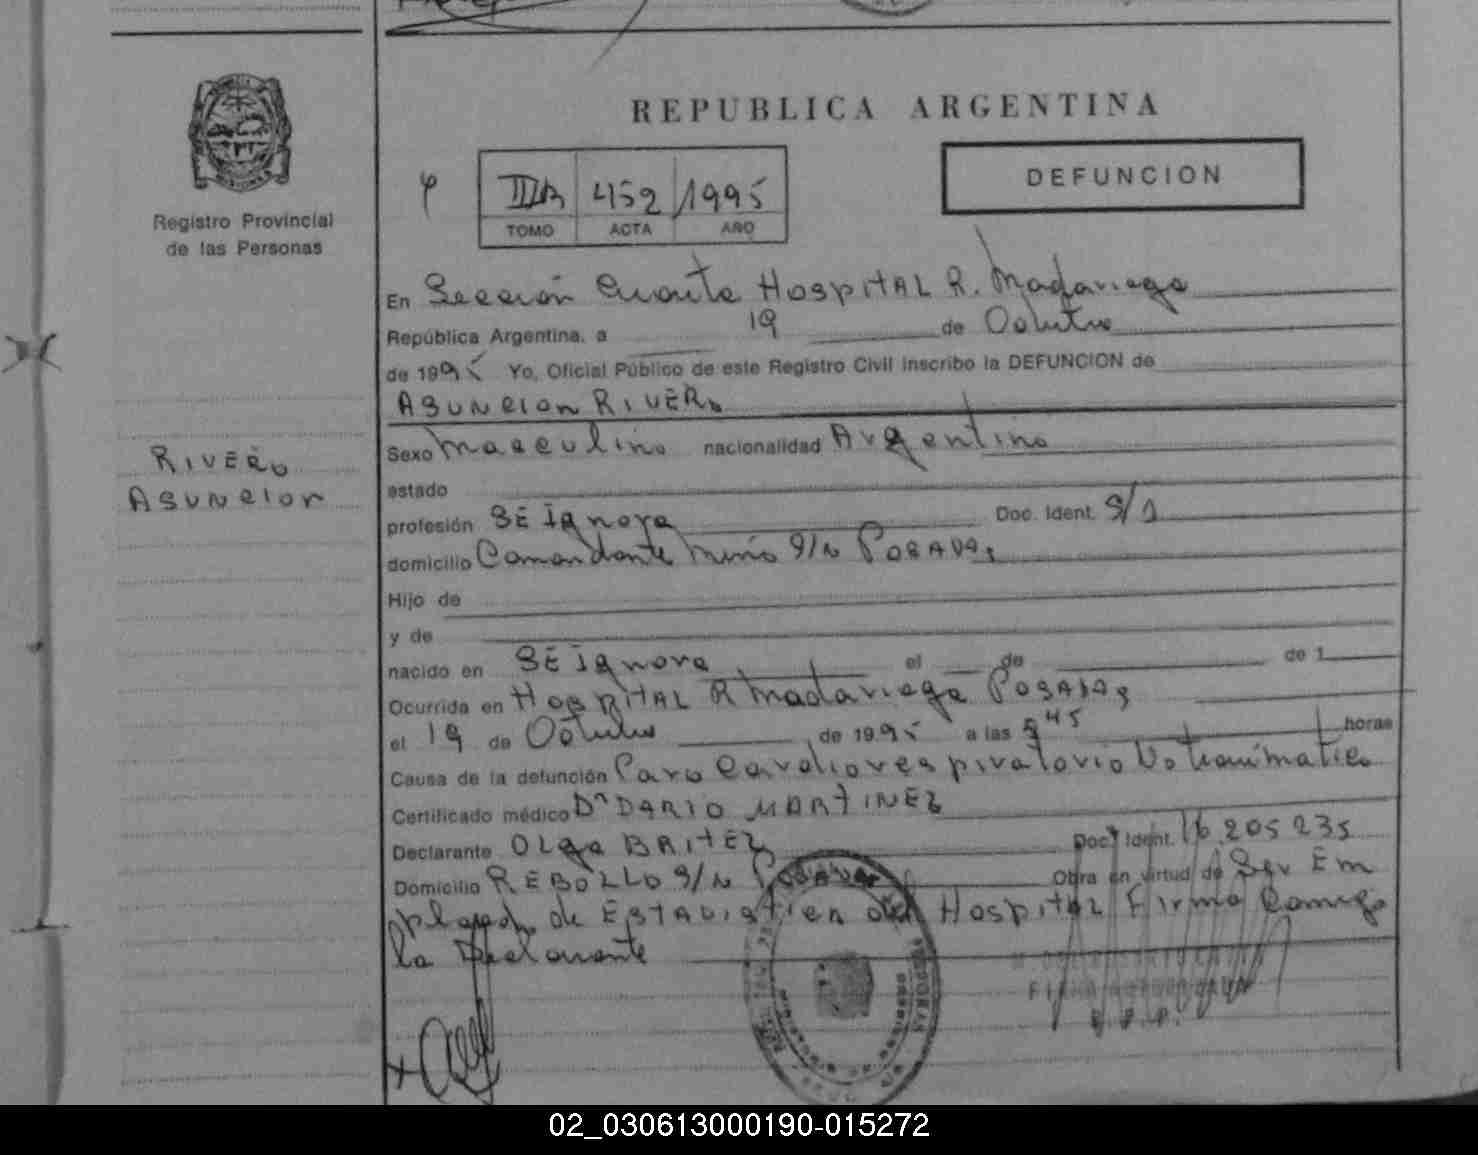 REPUBLICA ARGENTINA
DEFUNCION
Registro Provincial
de las Personas
IIIB 452 1995
TOMO ACTA AÑO
En Sección Cuarta Hospital R. Madariaga
República Argentina, a 19 de Octubre
de 1995 Yo, Oficial Público de este Registro Civil inscribo la DEFUNCION de
ASUNCION RIVERO
RIVERO
ASUNCION
Sexo Masculino nacionalidad Argentino
estado
profesión SE Ignora Doc. Ident. S/
domicilio Comandante Miño S/N POSADAS
Hijo de
y de
nacido en SE Ignora el de de 1
Ocurrida en HOSPITAL R Madariaga POSADAS
el 19 de Octubre de 1995 a las 945 horas
Causa de la defunción Paro Cardiorespiratorio No traumatico
Certificado médico Dr DARIO MARTINEZ
Declarante OLga BRITEZ Doc. Ident. 16.205235
Domicilio REBOLLO S/N POSADAS Obra en virtud de Ser Em
pleada de ESTADISTICA del Hospital Firma Conmigo
la Declarante
02_030613000190-015272